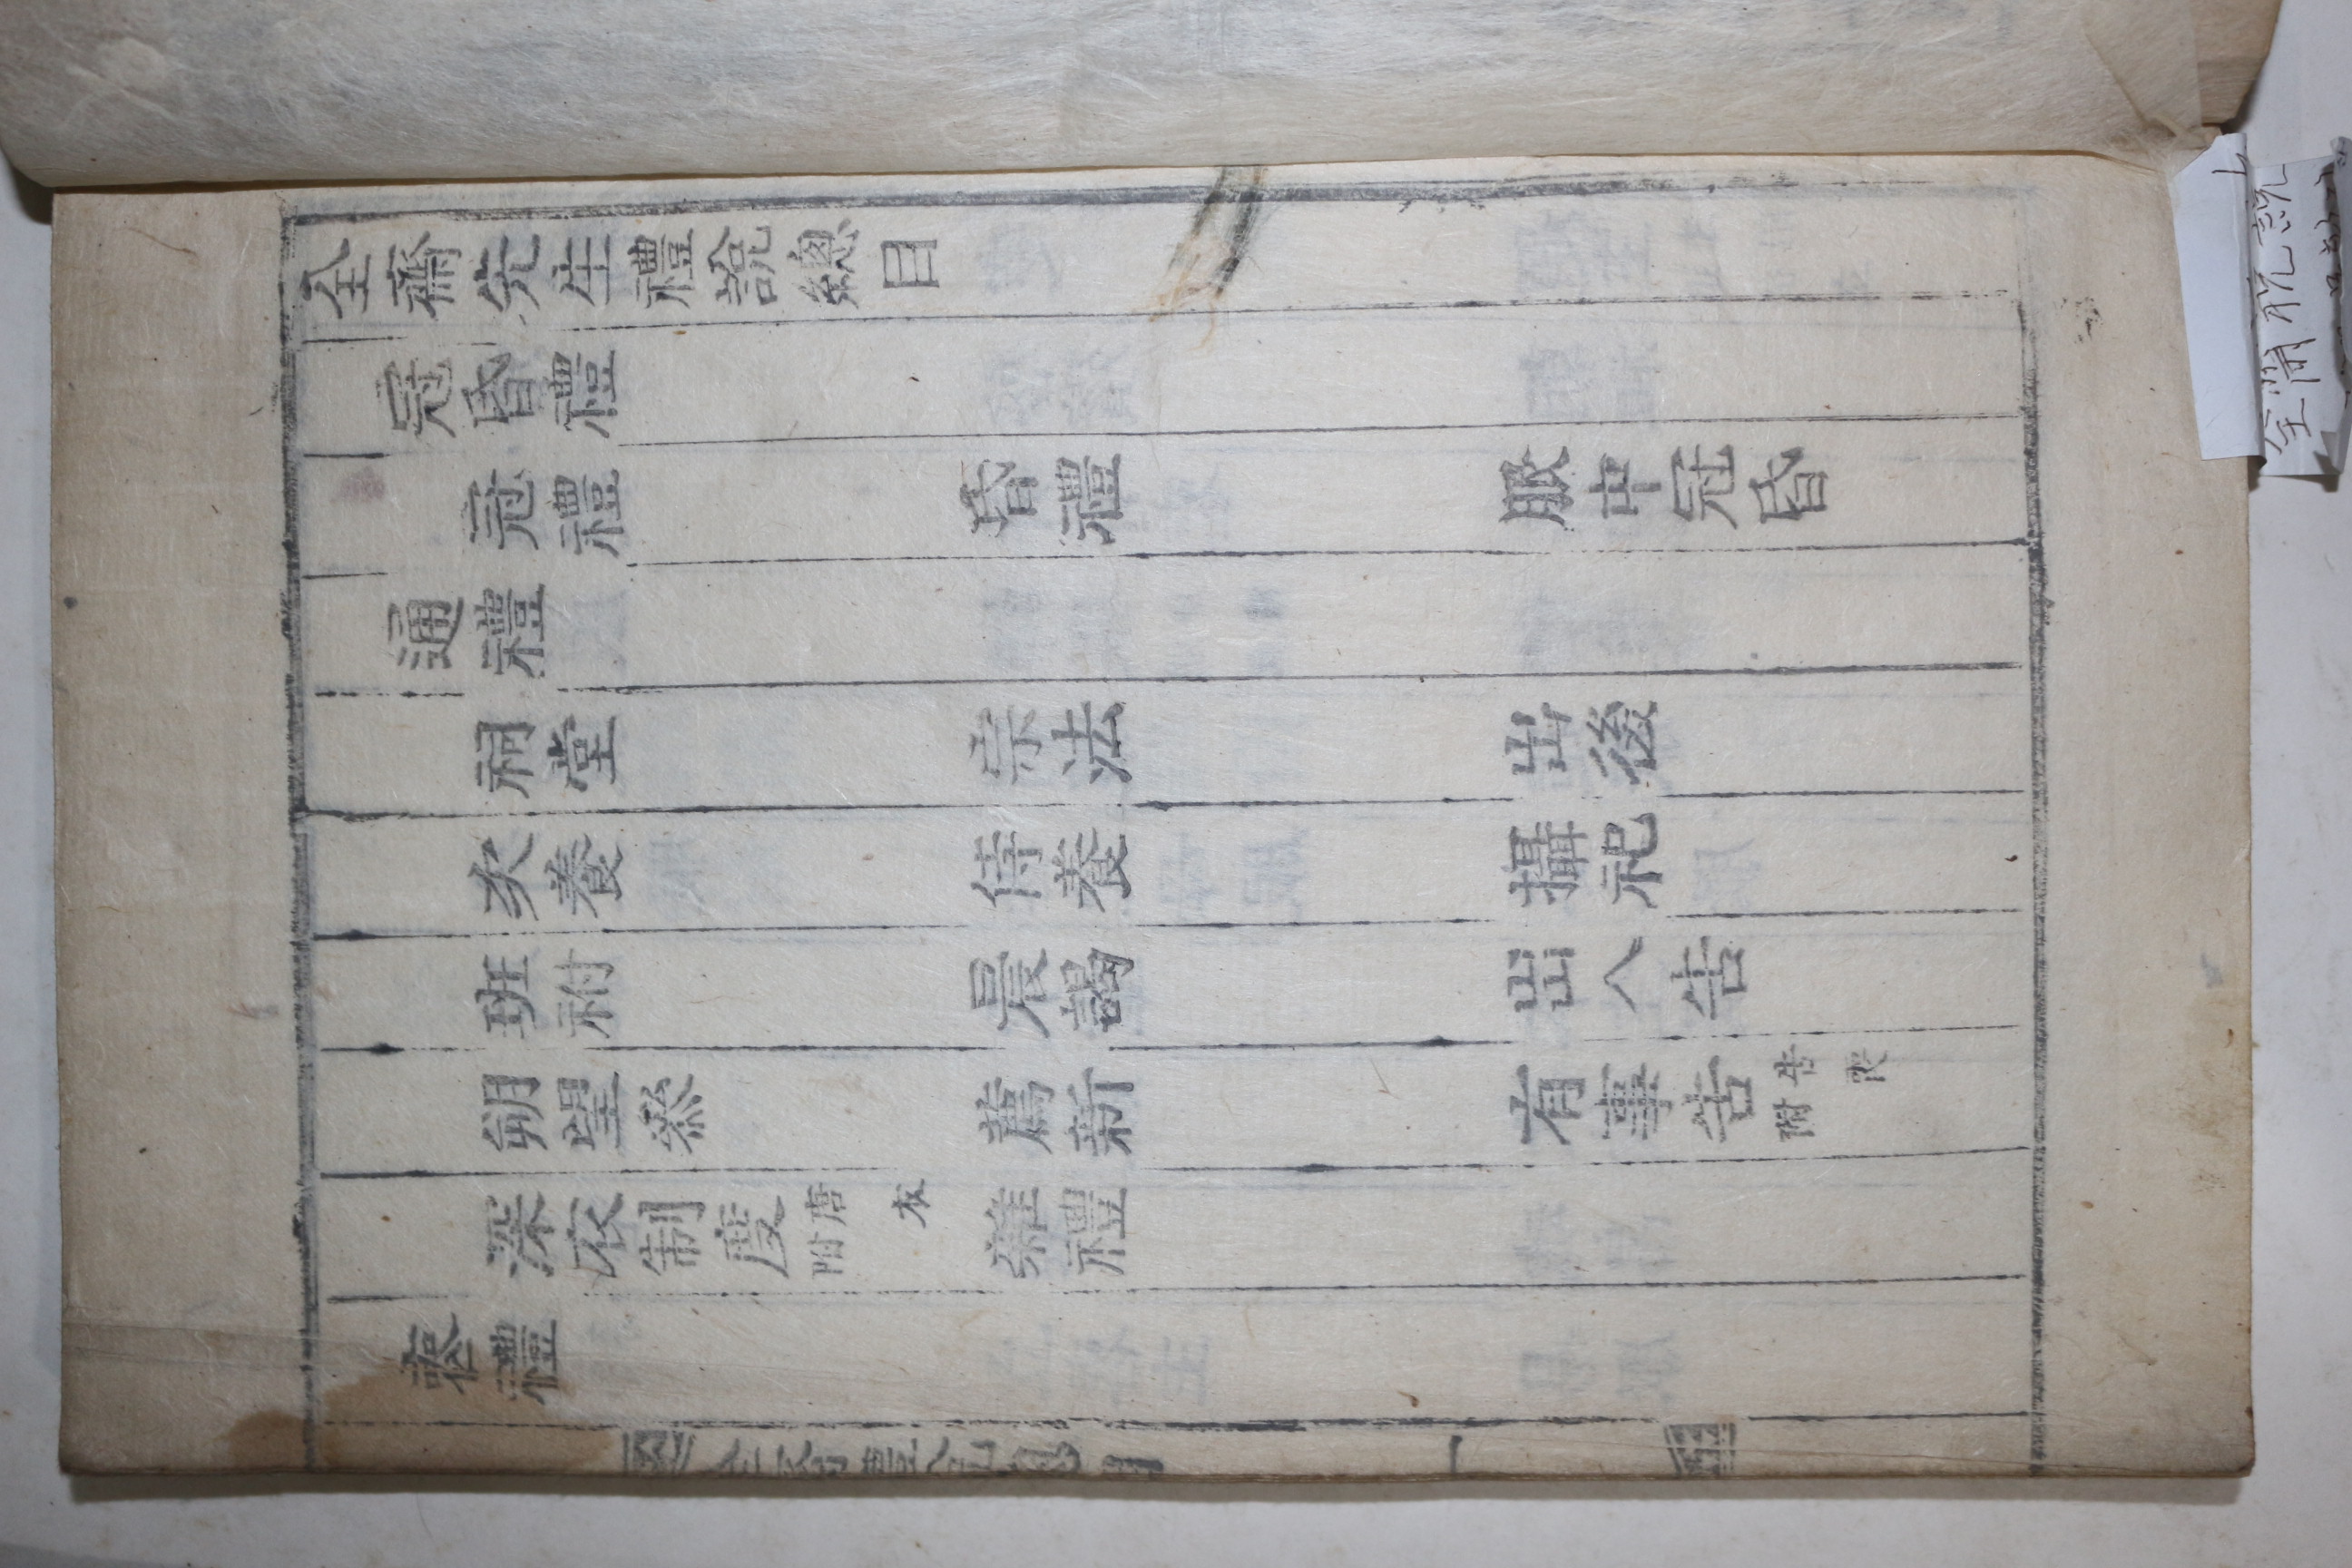 全齋先生禮說總目
冠昏禮
冠禮 昏禮 服中冠昏
通禮
祠堂 宗法 出後
次養 侍養 攝祀
班祔 晨謁 出入告
朔望參 薦新 有事告 告喪附
深衣制度 唐衣附 雜禮
喪禮
一
全齋礼說